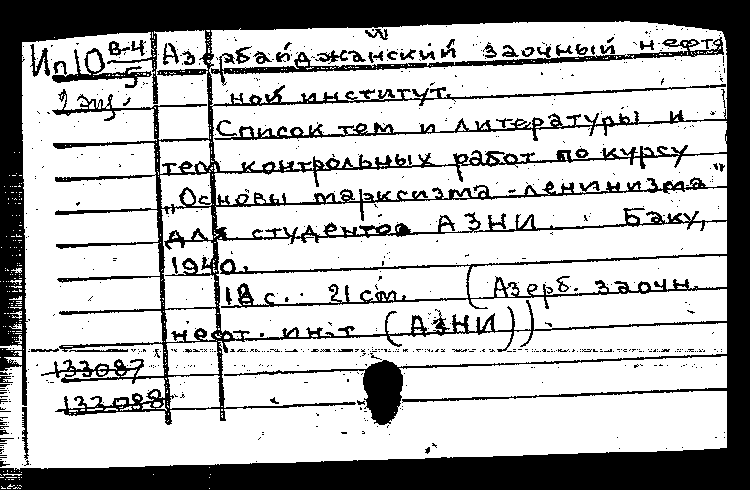 Ип10 В-4/5 Азербайджанский заочный нефтя
2 экз. ной институт.
Список тем и литературы и
тем контрольных работ по курсу
„Основы марксизма-ленинизма"
для студентов АЗНИ. Баку,
1940.
18 с. 21 cm. (Азерб. заочн.
нефт. ин-т (АЗНИ))
133087
133088